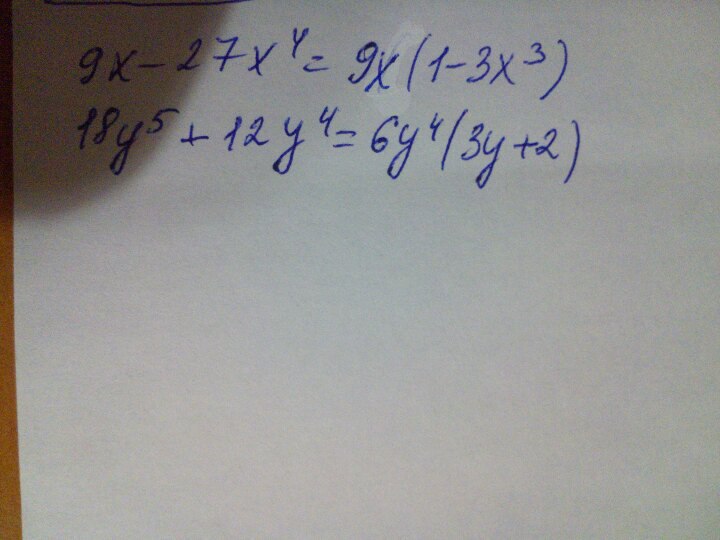 9x - 27x⁴ = 9x(1 - 3x³)
18y⁵ + 12y⁴ = 6y⁴(3y + 2)